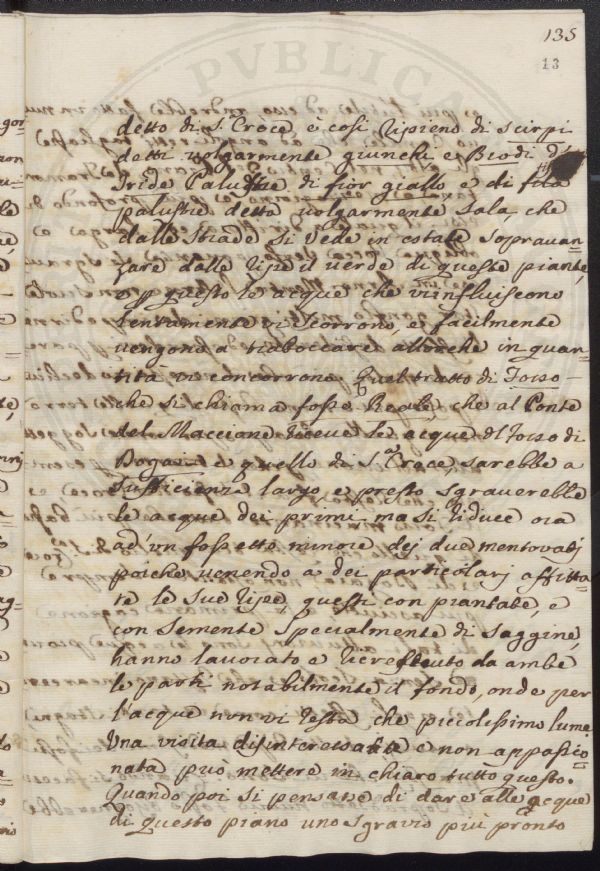 135
13
detto di S. Croce, è così ripieno di scirpi
detti volgarmente giunchi e Biodi d'
Iride Palustre di fior giallo e di fila
palustre detta volgarmente sala, che
dalle strade si vede in estate sopravan=
zare dalle ripe il verde di queste piante,
questo le acque che v'influiscono
lentamente vi scorrono, e facilmente
vengono a traboccare allorche in quan=
tità vi concorrono. Quel tratto di Forso
che si chiama fosso Reale, che al Ponte
del Maccione riceve le acque del Forso di
e quello di S.a Croce, sarebbe a
sufficienza largo e presto sgraverebbe
le acque dei primi, ma si riduce ora
ad'un fossetto minore dei due mentovatj
poiche venendo a dei particolarj affitta=
te le sue ripe, questi con piantate, e
con semente specialmente di saggine,
hanno lavorato e ricresciuto da ambe
le parti notabilmente il fondo, onde per
l'acque non vi resta che piccolissimo lume
Una visita disinteressata e non appassio=
nata può mettere in chiaro tutto questo.
Quando poi si pensasse di dare alle acque
di questo piano uno sgravio più pronto